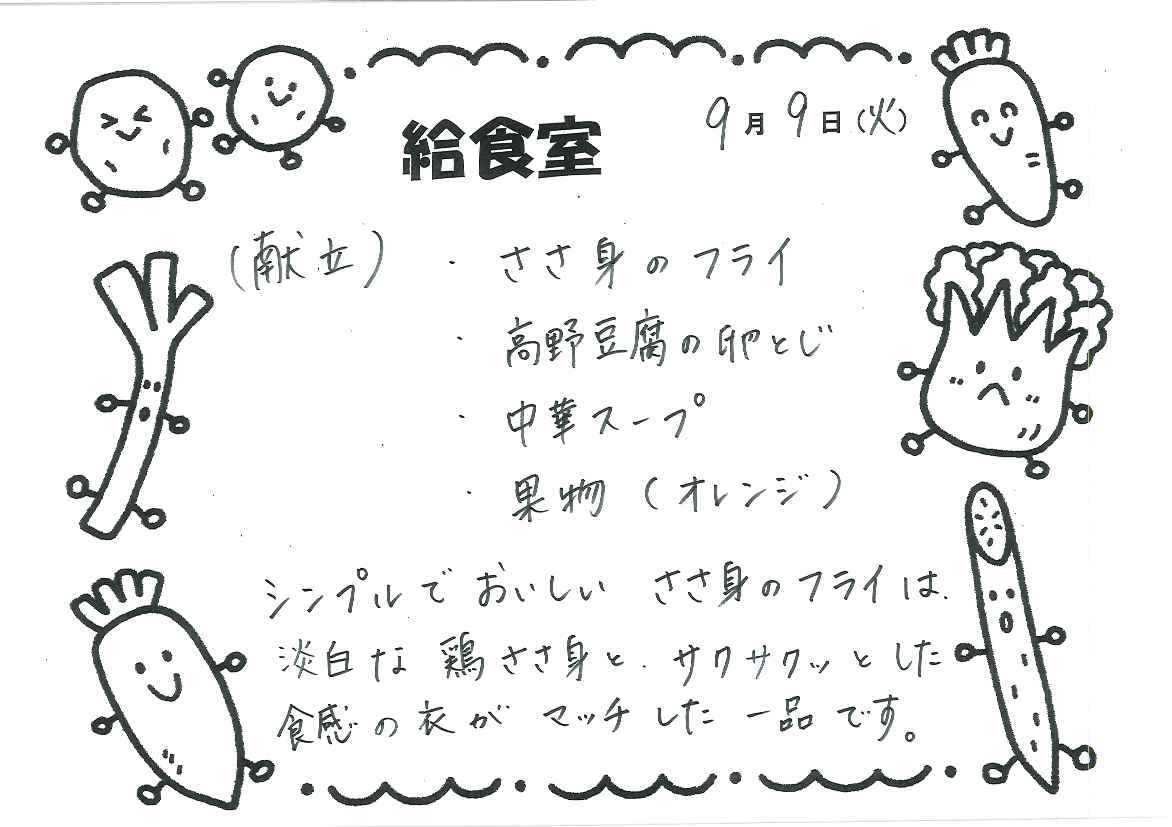 給食室
9月9日(火)
(献立)・ささ身のフライ
・高野豆腐の卵とじ
・中華スープ
・果物(オレンジ)
シンプルでおいしいささ身のフライは、
淡白な鶏ささ身と、サクサクッとした
食感の衣がマッチした一品です。